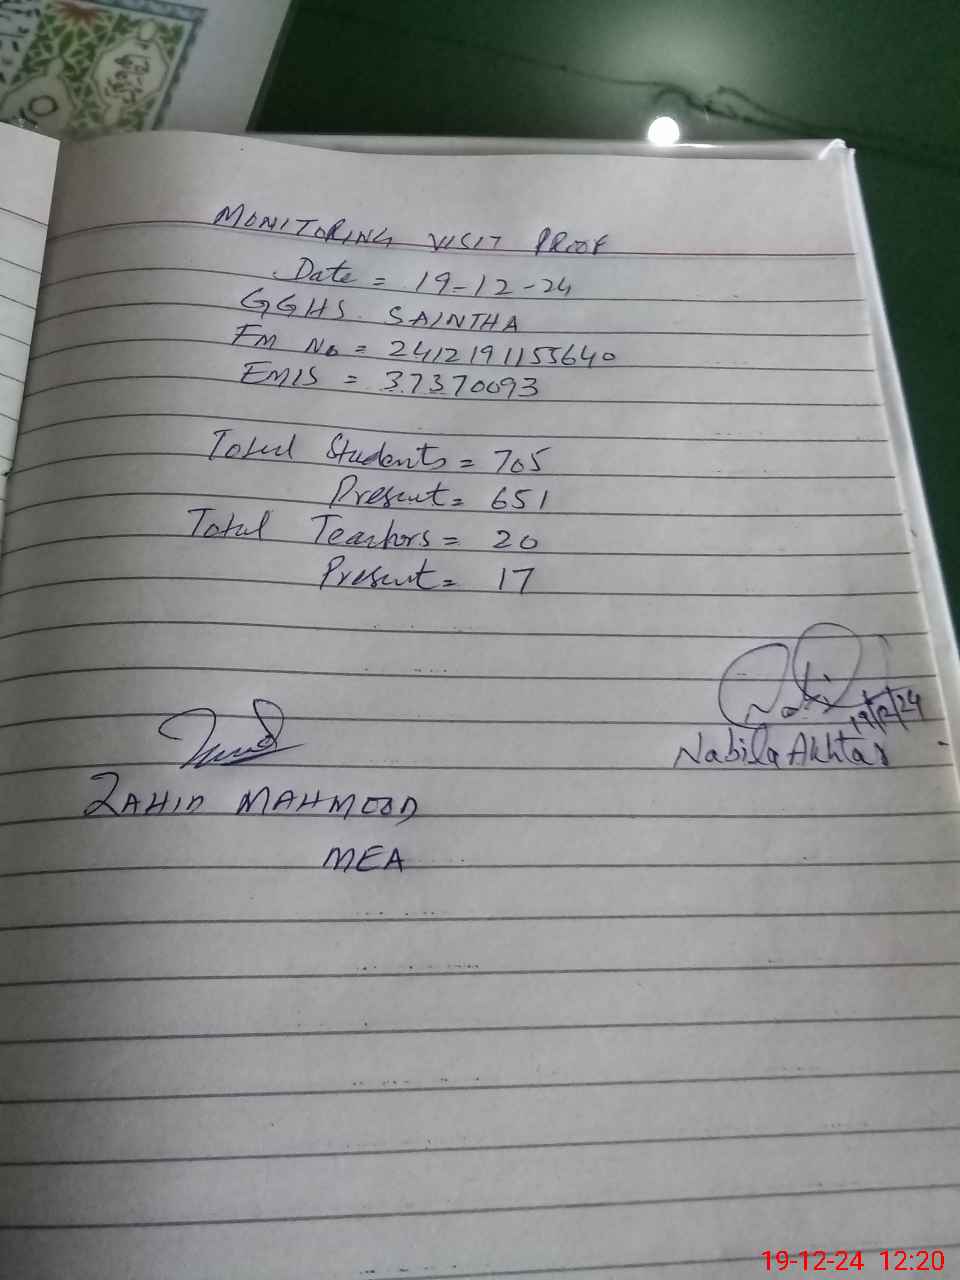 MONITORING VISIT PROOF
Date = 19-12-24
GGHS. SAINTHA
FM No = 2412191155640
EMIS = 37370093
Total Students = 705
Present = 651
Total Teachors = 20
Present = 17
19/12/24
Nabila Akhtar
ZAHID MAHMOOD
MEA
19-12-24 12:20